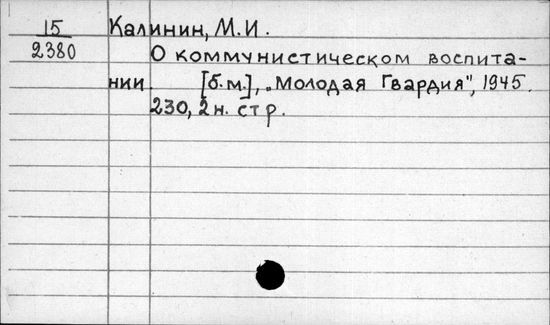 15 Калинин, М.И.
2380 О коммунистическом воспита-
нии. [б.м.], „Молодая Гвардия", 1945.
230, 2 н. стр.